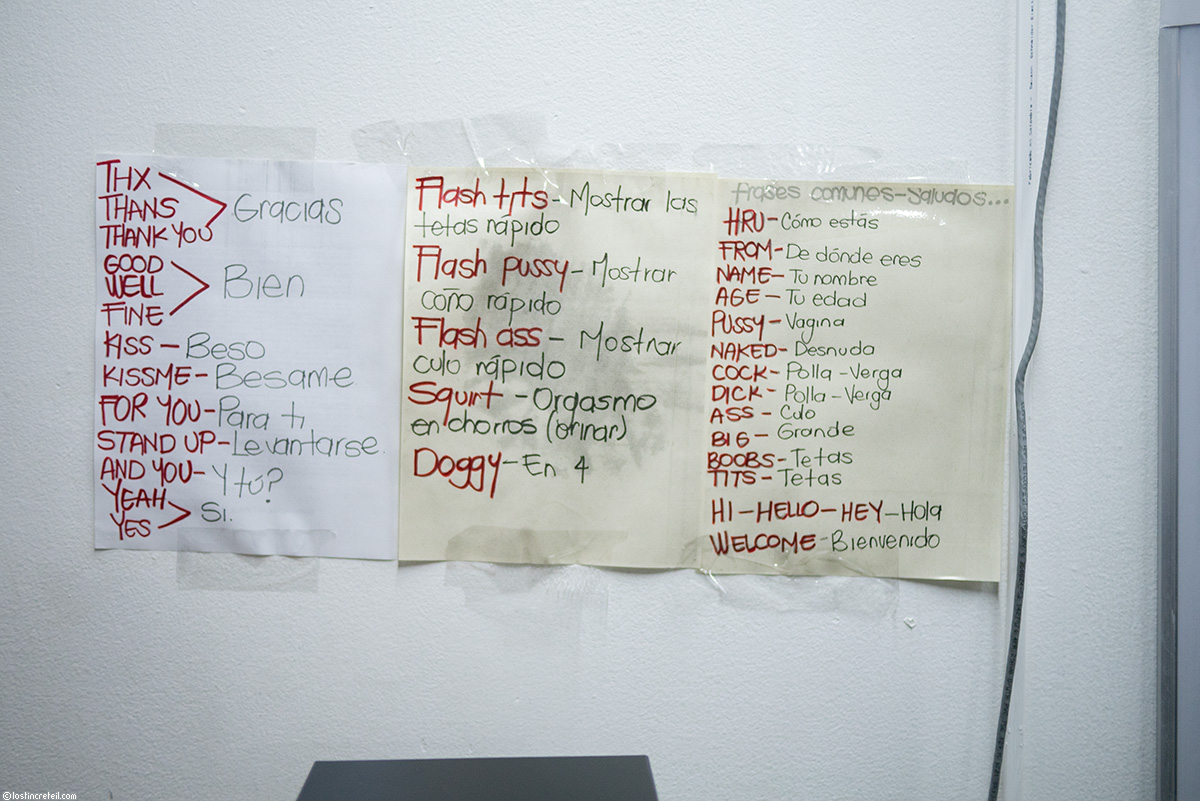 THX
THANS
THANK YOU
Gracias
GOOD
WELL
FINE
Bien
KISS - Beso
KISSME - Besame
FOR YOU - Para ti
STAND UP - Levantarse.
AND YOU - Y tú?
YEAH
YES
Si.
Flash tits - Mostrar las
tetas rápido
Flash pussy - Mostrar
coño rápido
Flash ass - Mostrar
culo rápido
Squirt - Orgasmo
en chorros (orinar)
Doggy - En 4
frases comunes - saludos...
HRU - Cómo estás
FROM - De dónde eres
NAME - Tu nombre
AGE - Tu edad
PUSSY - Vagina
NAKED - Desnuda
COCK - Polla - Verga
DICK - Polla - Verga
ASS - Culo
BIG - Grande
BOOBS - Tetas
TITS - Tetas
HI - HELLO - HEY - Hola
WELCOME - Bienvenido
©lostincreteil.com